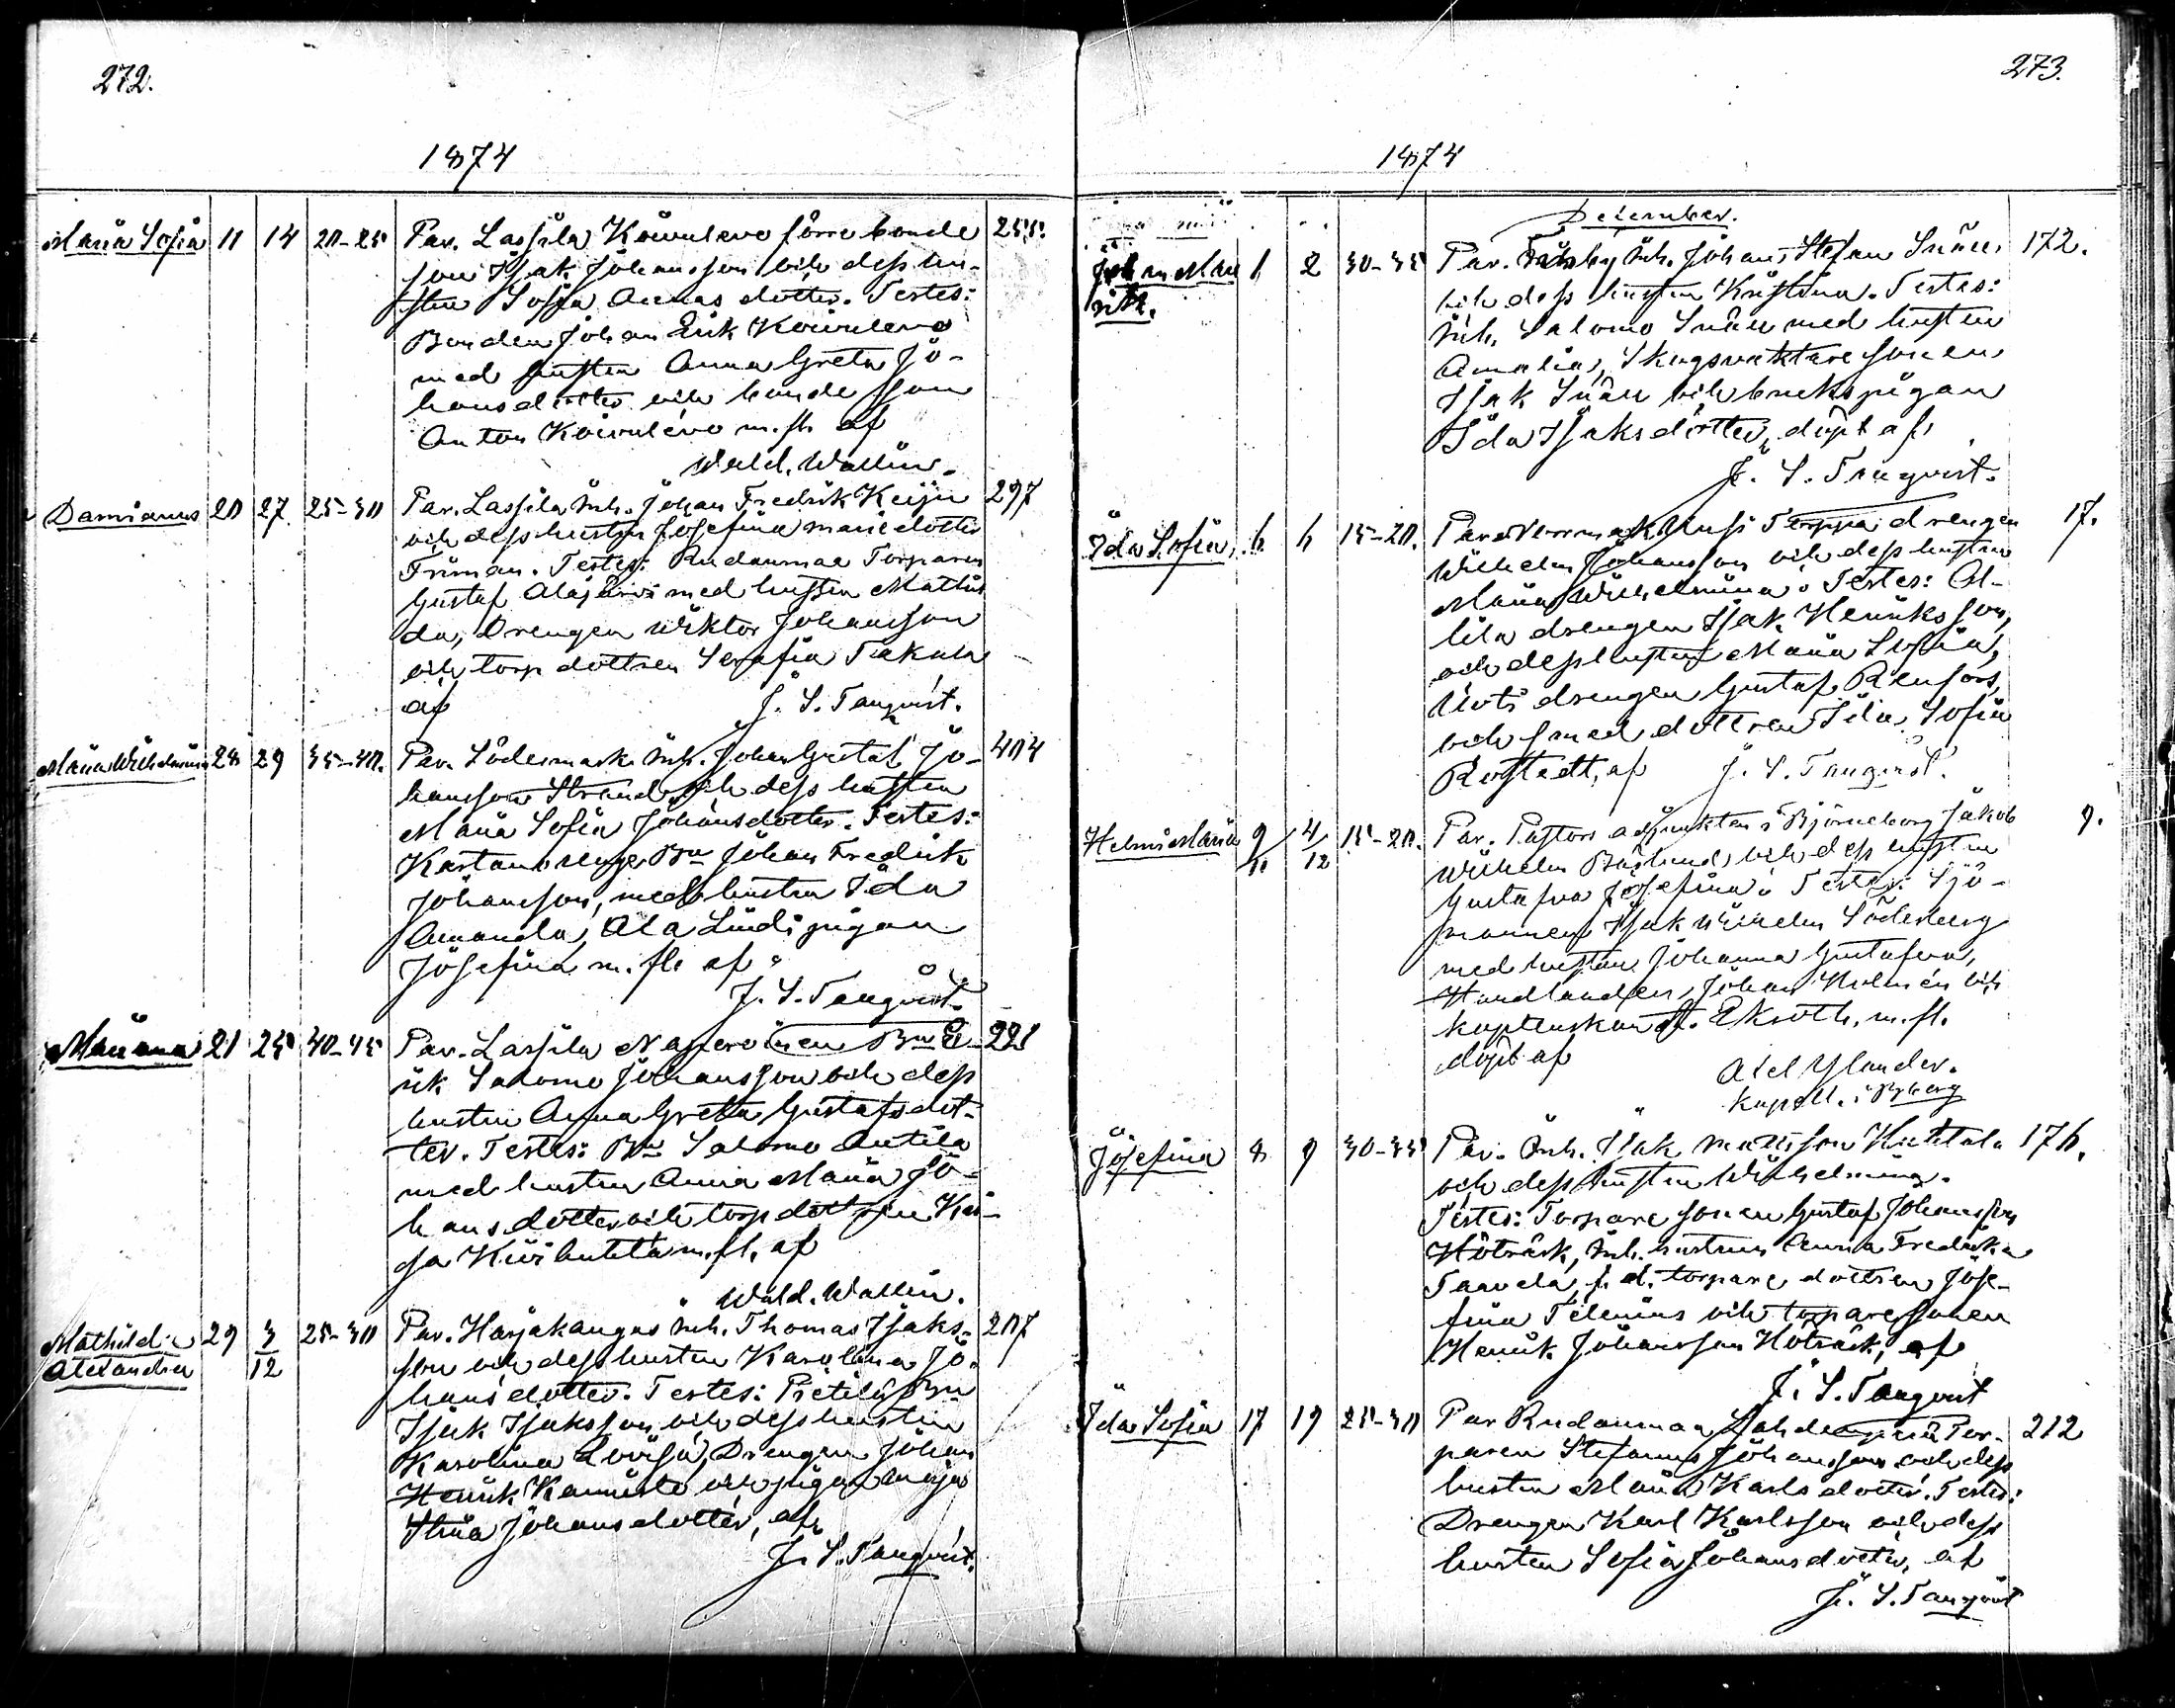 272.
1874
Maria Sofia 11 14 20-25 Par. Lassila Koivulevo förre bonde 255.
son Isak Johansson och dess hu-
stru Sofia Annas dotter. Testes:
Bonden Johan Erik Koivulevo
med hustru Anna Greta Jo-
hansdotter och bonde sson
Anton Koivulevo m. fl. af
Wald. Wallin.
Damianus 20 27 25-30 Par. Lassila Inh. Johan Fredrik Keiju 297
och dess hustru Josefina Mariedotter
Friman. Testes: Rudanmaa Torparen
Gustaf Alajärvi med hustru Mathil
da, Drengen Wiktor Johansson
och torp dottren Serafia Takala
af J. S. Tanqvist.
Maria Wilhelmina 28 29 35-40. Par. Södermark Inh. Johan Gustaf Jo- 404
hansson Strand och dess hustru
Maria Sofia Johansdotter. Testes:
Bn Johan Fredrik
Johansson, med hustru Ida
Amanda, Ala Lindi pigan
Josefina m. fl. af
J. S. Tanqvist.
Mariana 21 25 40-45 Par. Lassila Bn E- 221
rik Salomo Johansson och dess
hustru Anna Greta Gustafsdot-
ter. Testes: Bn Salomo Antila
med hustru Anna Maria Jo-
hansdotter och torp dottren Kai-
sa Kivihuhta m. fl. af
Wald. Wallin.
Mathilda 29 3/12 25-30 Par. Harjakangas Inh. Thomas Isaks- 207
Alexandra son och dess hustru Karolina Jo-
hansdotter. Testes: Prettilä Bn
Isak Isaksson och dess hustru
Karolina Lovisa, Drengen Johan
Henrik Kamistо och pigan Maja
Stina Johansdotter, af
J. S. Tanqvist.
273.
1874
December.
Johan Man 1 2 30-35 Par. Inh. Johan Stefan Snäll 172.
rik. och dess hustru Kristina. Testes:
Inh. Salomo Snäll med hustru
Amalia, Skogsvaktare sonen
Isak Snäll och brukspigan
Ida Isaksdotter, döpt af
J. S. Tanqvist.
Ida Sofia 6 6 15-20. Par. Norrmark Uusi Torppa drengen 17.
Wilhelm Johansson och dess hustru
Maria Wilhelmina. Testes: Al-
lila drengen Isak Henriksson,
och dess hustru Maria Sofia,
Uoti drengen Gustaf Renfors,
och smed dottren Ida Sofia
Rostedt, af J. S. Tanqvist.
Helmi Maria 9/11 4/12 15-20. Par. Pastors adjunkten i Björneborg Jakob 9.
Wilhelm och dess hustru
Gustafva Josefina. Testes: Sjö-
mannen Isak Wilhelm Söderberg
med hustru Johanna Gustafva,
Handlanden Johan Holmén och
kaptenskan A. Ekroth. m. fl.
döpt af Axel Ylander.
Kapell. i Bjborg
Josefina 8 9 30-35 Par. Inh. Isak Mattsson Huhtala 176.
och dess hustru Wilhelmina.
Testes: Torpare sonen Gustaf Johansson
Höträsk, Inh. hustrun Anna Fredrika
Taavela, f. d. torpare dottren Jose-
fina Tilenius och torpare sonen
Henrik Johansson Höträsk, af
J. S. Tanqvist
Ida Sofia 17 19 25-30 Par. Rudanmaa Lähdeoja Tor- 212
paren Stefanus Johansson och dess
hustru Maria Karlsdotter. Testes:
Drengen Karl Karlsson och dess
hustru Sofia Johansdotter, af
J. S. Tanqvist